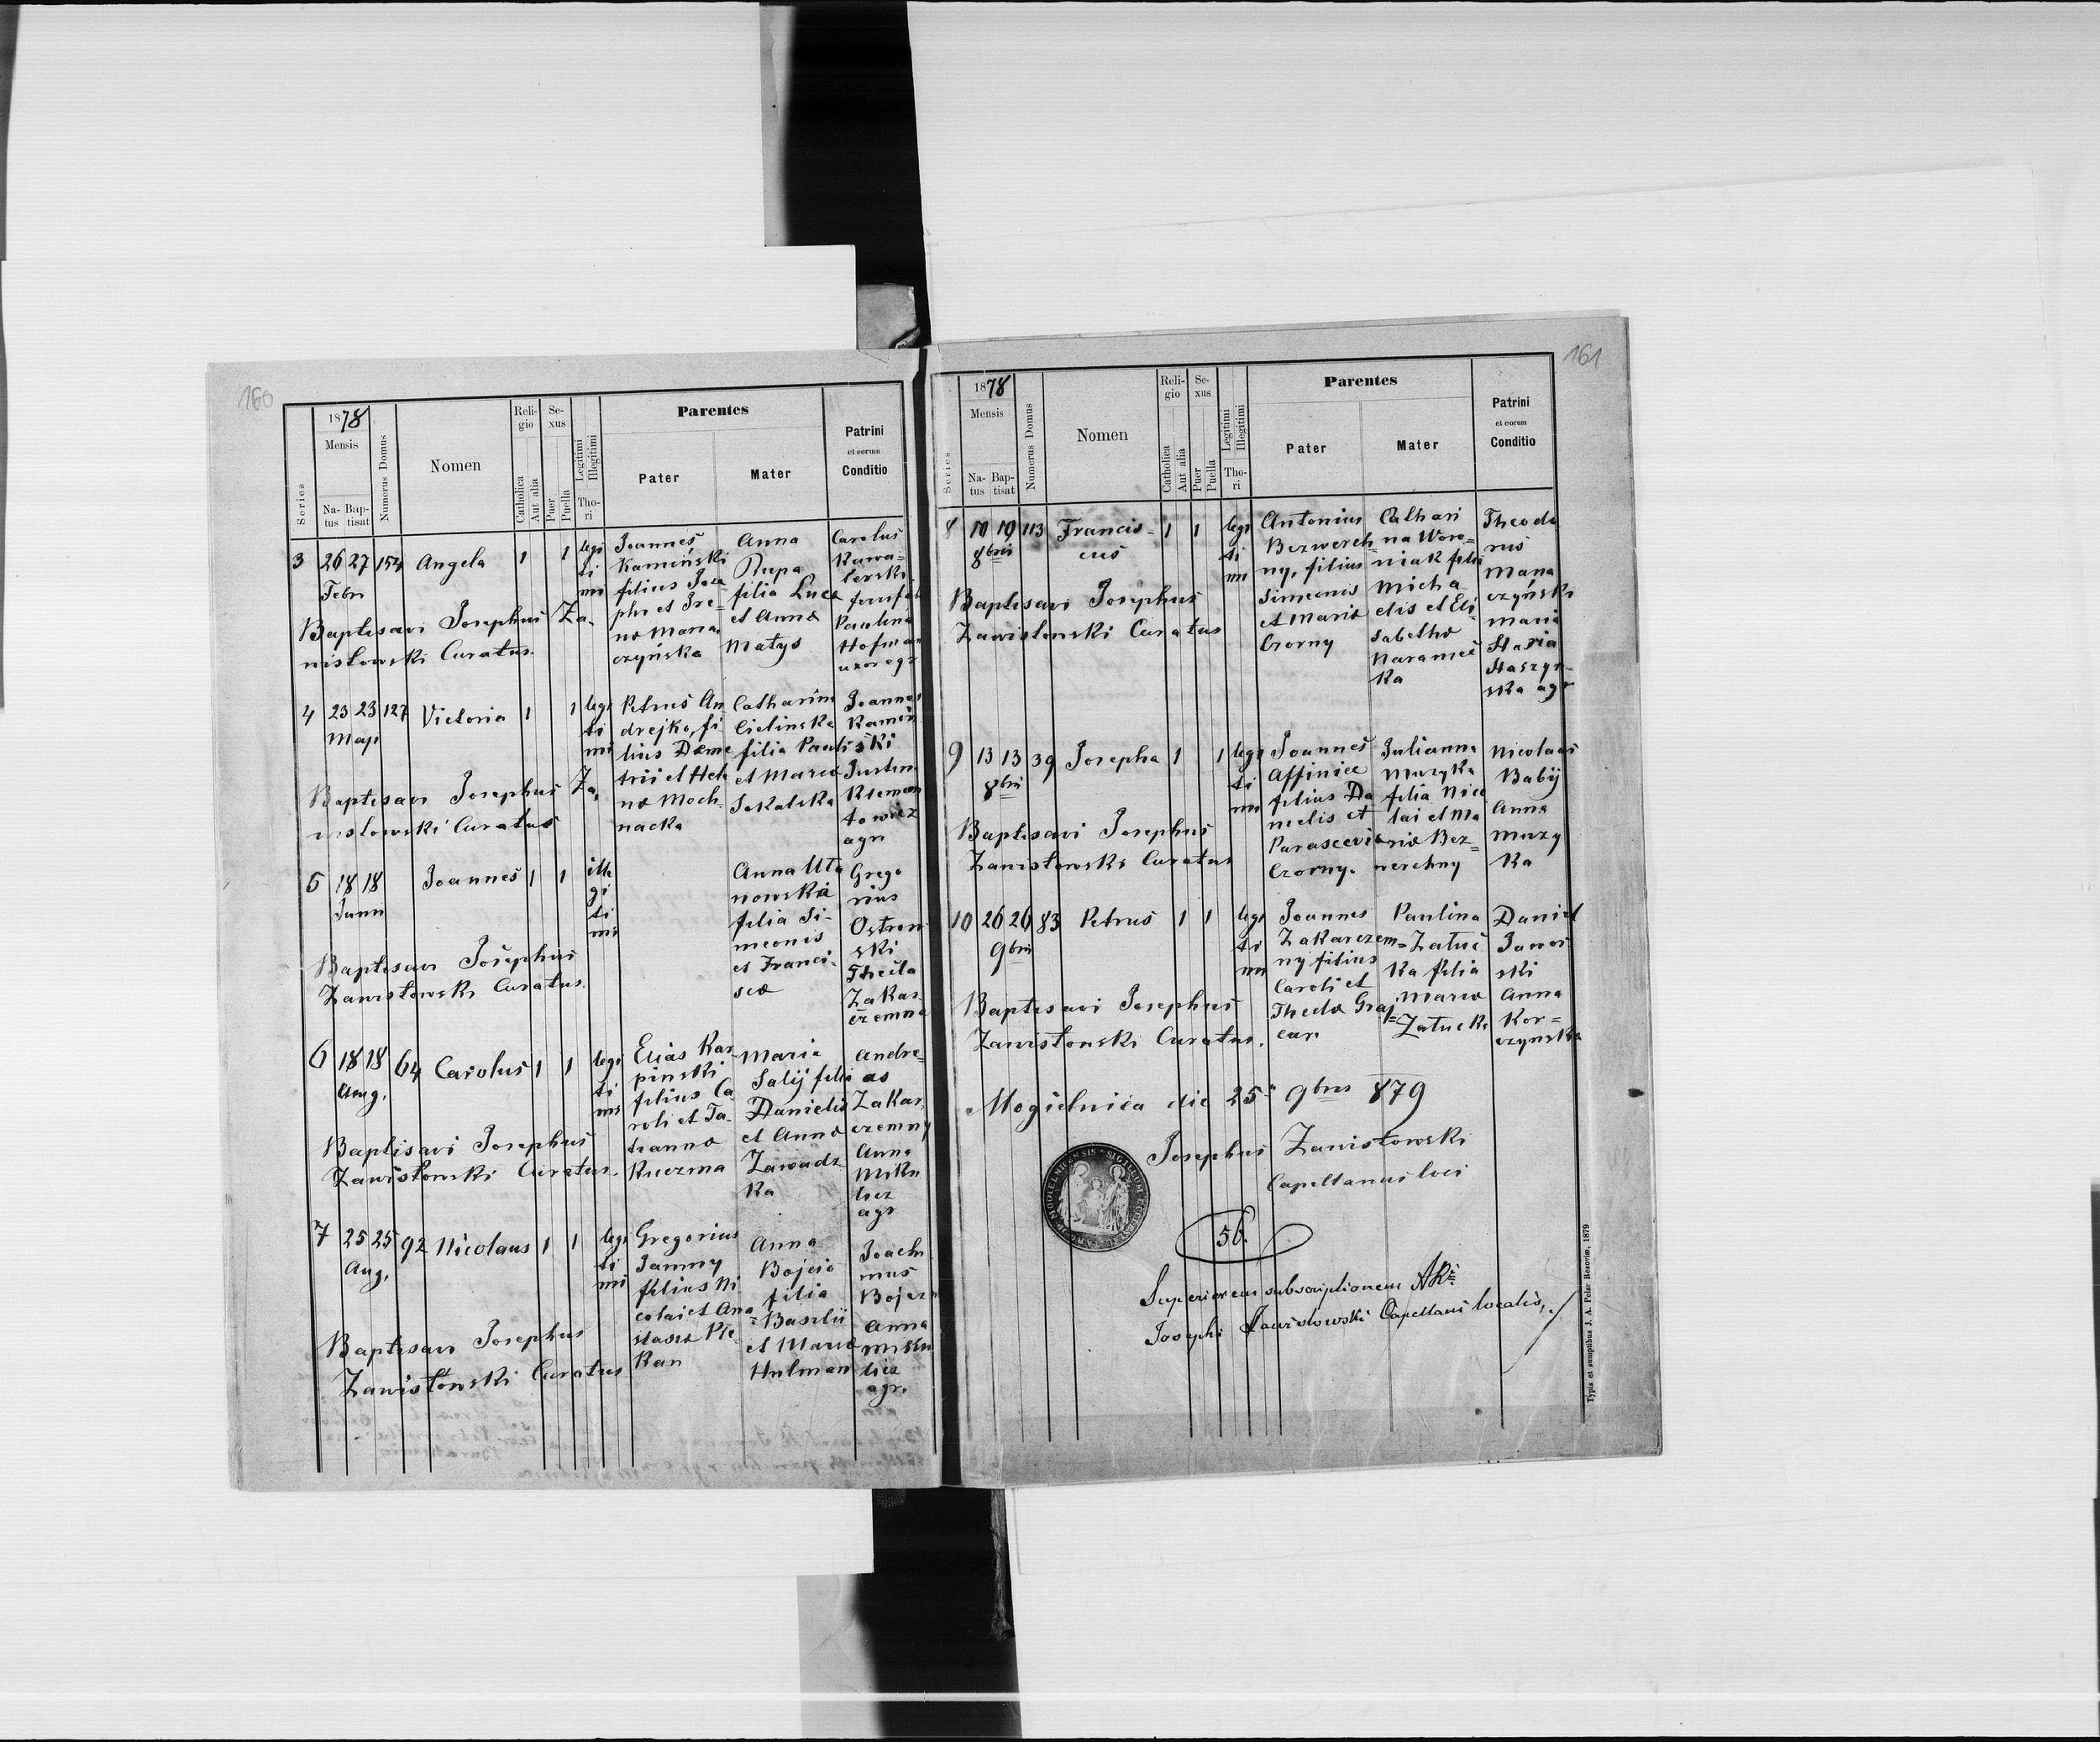 160
1878
Mensis
Series
Na-
tus
Bap-
tisat
Numerus Domus
Nomen
Reli-
gio
Catholica
Aut alia
Se-
xus
Puer
Puella
Legitimi
Illegitimi
Tho-
ri
Parentes
Pater
Mater
Patrini
et eorum
Conditio
3 26 27 154 Angela 1 1
Febr
legi
ti
mi
Joannes
Kamiński
filius Jose
phi et Ire-
næ Mana
czyńska
Anna
Rupa
filia Luca
et Anna
Matys
Carolus
Kawa=
lerski
Paulina
Hofman
uxor agr
Baptisavi Josephus Za-
wisłowski Curatus
4 23 23 127 Victoria 1 1
Maji
legi
ti
mi
Petrus An
drejko, fi
lius Deme
trii et Hele
næ Moch-
nacka
Catharina
Cielinska
filia Pauli
et Maria
Sokalska
Joannes
Kamiń
ski
Justina
Klemen
towicz
agri
Baptisavi Josephus Za,
wisłowski Curatus
5 18 18 Joannes 1 1
Junii
ille
gi
ti
mi
Anna Uła
nowska
filia Si-
meonis
et Franci-
scæ
Grego
rius
Ostrow
ski
Thecla
Zakar
czemna
Baptisavi Josephus
Zawisłowski Curatus.
6 18 18 64 Carolus 1 1
Aug.
legi
ti
mi
Elias Kar
pinski
filius Ca
roli et Ta-
tianna
Kuczma
Maria
Salij filia
Danielis
et Anna
Zawadz
ka
Andre=
as
Zakar
czemny
Anna
Miku
licz
agr
Baptisavi Josephus
Zawisłowski Curatus.
7 25 25 92 Nicolaus 1 1
Aug.
legi
ti
mi
Gregorius
Jamny
filius Ni
colai et Ana
stasiæ Pie-
kan
Anna
Bojcio
filia
Basilii
et Maria
Hulman
Joach
mus
Anna
Miku
licz
agr.
Baptisavi Josephus
Zawisłowski Curatus
161
1878
Mensis
Series
Na-
tus
Bap-
tisat
Numerus Domus
Nomen
Reli-
gio
Catholica
Aut alia
Se-
xus
Puer
Puella
Legitimi
Illegitimi
Tho-
ri
Parentes
Pater
Mater
Patrini
et eorum
Conditio
8 10 19 113 Francis-
cus 1 1
8bris
legi
ti
mi
Antonius
Bezwerch=
ny, filius
Simeonis
et Maria
Czorny
Cathari
na Woro=
niak filia
Micha
elis et Eli
sabetha
Theodo
rus
Mana
czyński
Maria
Staszyń-
ska agr
Baptisavi Josephus
Zawisłowski Curatus
9 13 13 39 Josepha 1 1
8bris
legi
ti
mi
Joannes
Affinice
filius Da
nielis et
Parascevia
Czorny.
Julianna
Muzyka
filia Nico
lai et Ma
ria Bez=
werchny
Nicolaus
Babij
Anna
Muzy
ka
Baptisavi Josephus
Zawisłowski Curatus
10 26 26 83 Petrus 1 1
9bris
legi
ti
mi
Joannes
Zakarczem=
ny filius
Caroli et
Thecla Graj=
car.
Paulina
Załuc
ka filia
Maria
Załucka
Daniel
Janow
ski
Anna
Kor=
czynska
Baptisavi Josephus
Zawisłowski Curatus.
Mogielnica die 25a 9bris 879
Josephus Zawisłowski
Capellanus loci
56.
Superiorem subscriptionem ARi
Josephi Zawisłowski Capellani localis,
Typis et sumptibus J. A. Pelar Resoviæ, 1879